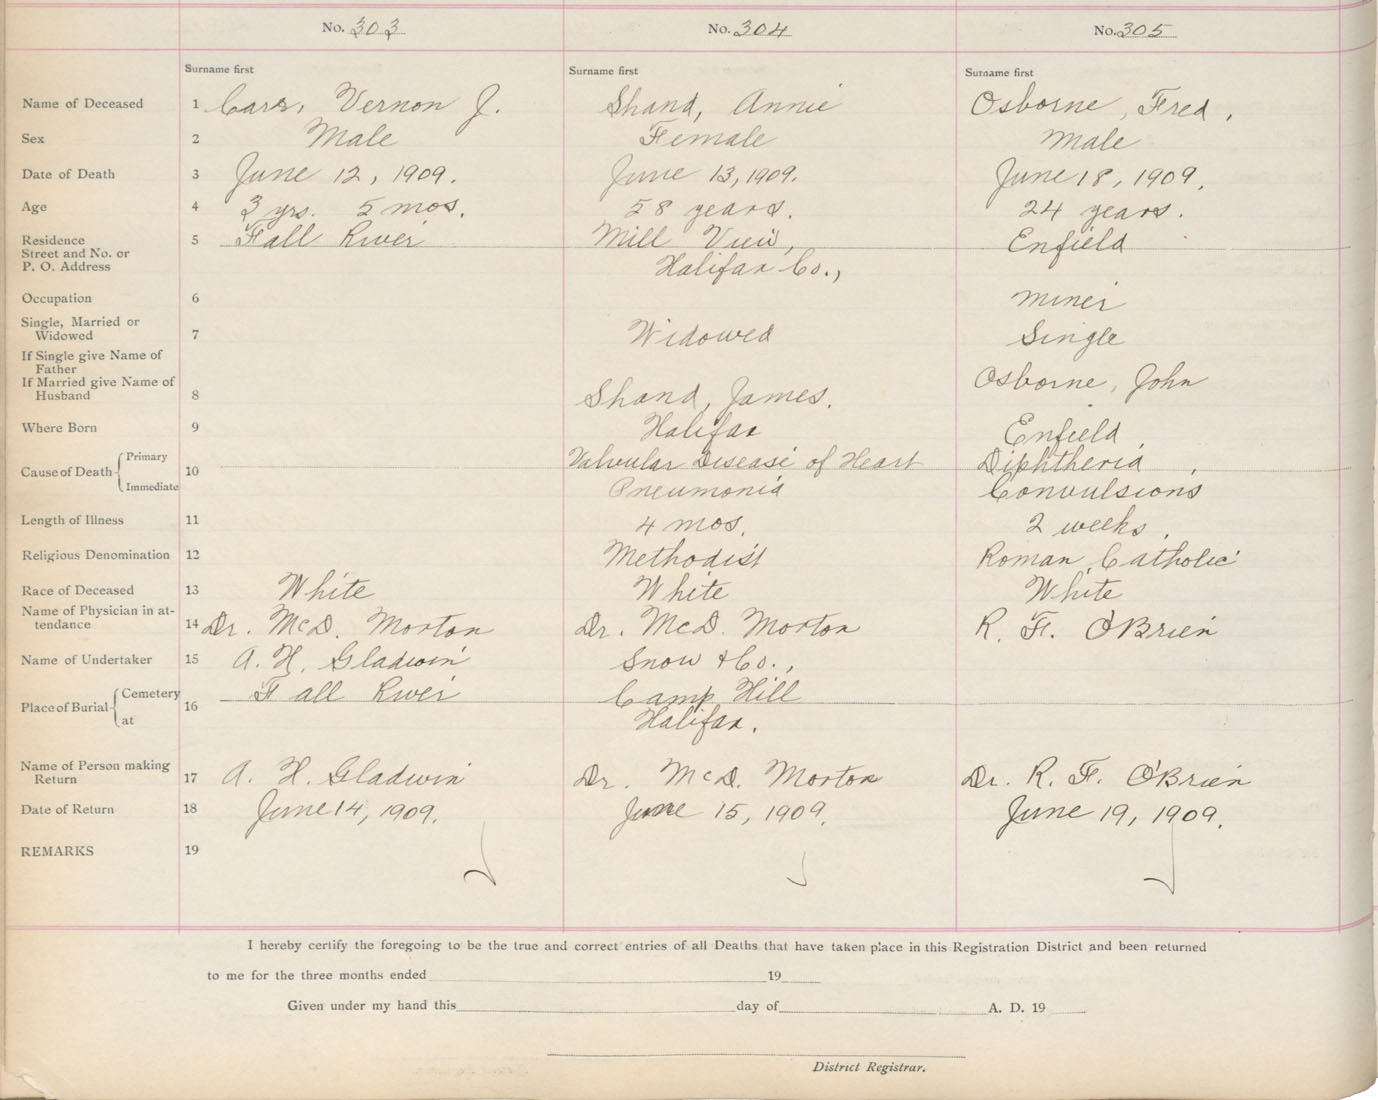 No. 303 No. 304 No. 305
Surname first Surname first Surname first
Name of Deceased 1 Vernon J. Shand, Annie Osborne, Fred,
Sex 2 Male Female Male
Date of Death 3 June 12, 1909. June 13, 1909. June 18, 1909.
Age 4 3 yrs. 5 mos. 58 years. 24 years.
Residence 5 Fall River Mill View, Enfield
Street and No. or
P. O. Address Halifax Co.,
Occupation 6 miner
Single, Married or
Widowed 7 Widowed Single
If Single give Name of
Father
If Married give Name of Osborne, John
Husband 8 Shand, James.
Where Born 9 Halifax Enfield,
Cause of Death Primary 10 Valvular Disease of Heart Diphtheria,
Immediate Pneumonia Convulsions
Length of Illness 11 4 mos. 2 weeks.
Religious Denomination 12 Methodist Roman Catholic
Race of Deceased 13 White White White
Name of Physician in at-
tendance 14 Dr. McD. Morton Dr. McD. Morton R. F. O'Brien
Name of Undertaker 15 A. H. Gladwin Snow & Co.,
Place of Burial Cemetery 16 Fall River Camp Hill
at Halifax.
Name of Person making
Return 17 A. H. Gladwin Dr. McD. Morton Dr. R. F. O'Brien
Date of Return 18 June 14, 1909. June 15, 1909. June 19, 1909.
REMARKS 19
I hereby certify the foregoing to be the true and correct entries of all Deaths that have taken place in this Registration District and been returned
to me for the three months ended 19
Given under my hand this day of A. D. 19
District Registrar.